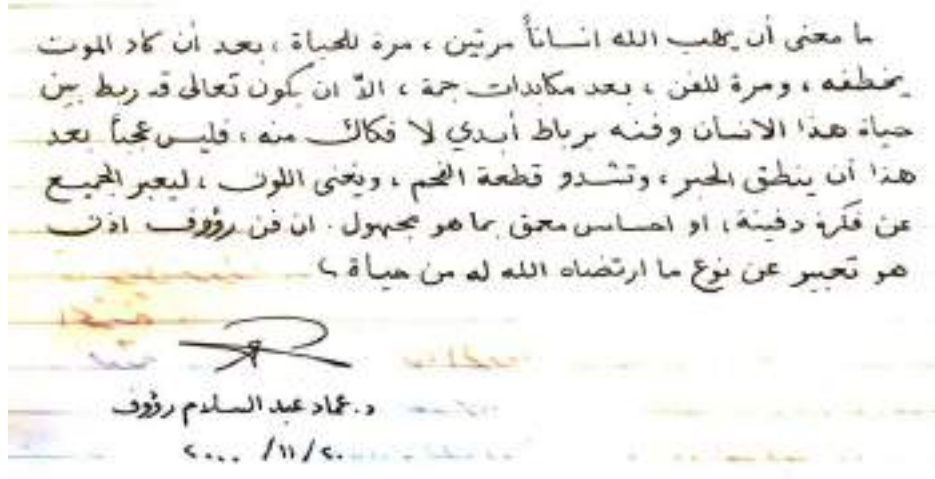 ما معنى أن يهب الله انساناً مرتين ، مرة للحياة ، بعد أن كاد الموت
يخطفه ، ومرة للفن ، بعد مكابدات جمة ، الاّ ان يكون تعالى قد ربط بين
حياة هذا الانسان وفنه برباط أبدي لا فكاك منه ، فليس عجباً بعد
هذا أن ينطق الحبر ، وتشدو قطعة الفحم ، ويغني اللون ، ليعبر الجميع
عن فكرة دفينة ، او احساس معمق بما هو مجهول . ان فن رؤوف اذن
هو تعبير عن نوع ما ارتضاه الله له من حياة
د. عماد عبد السلام رؤوف
٢٠ / ١١ / ٢٠٠٠